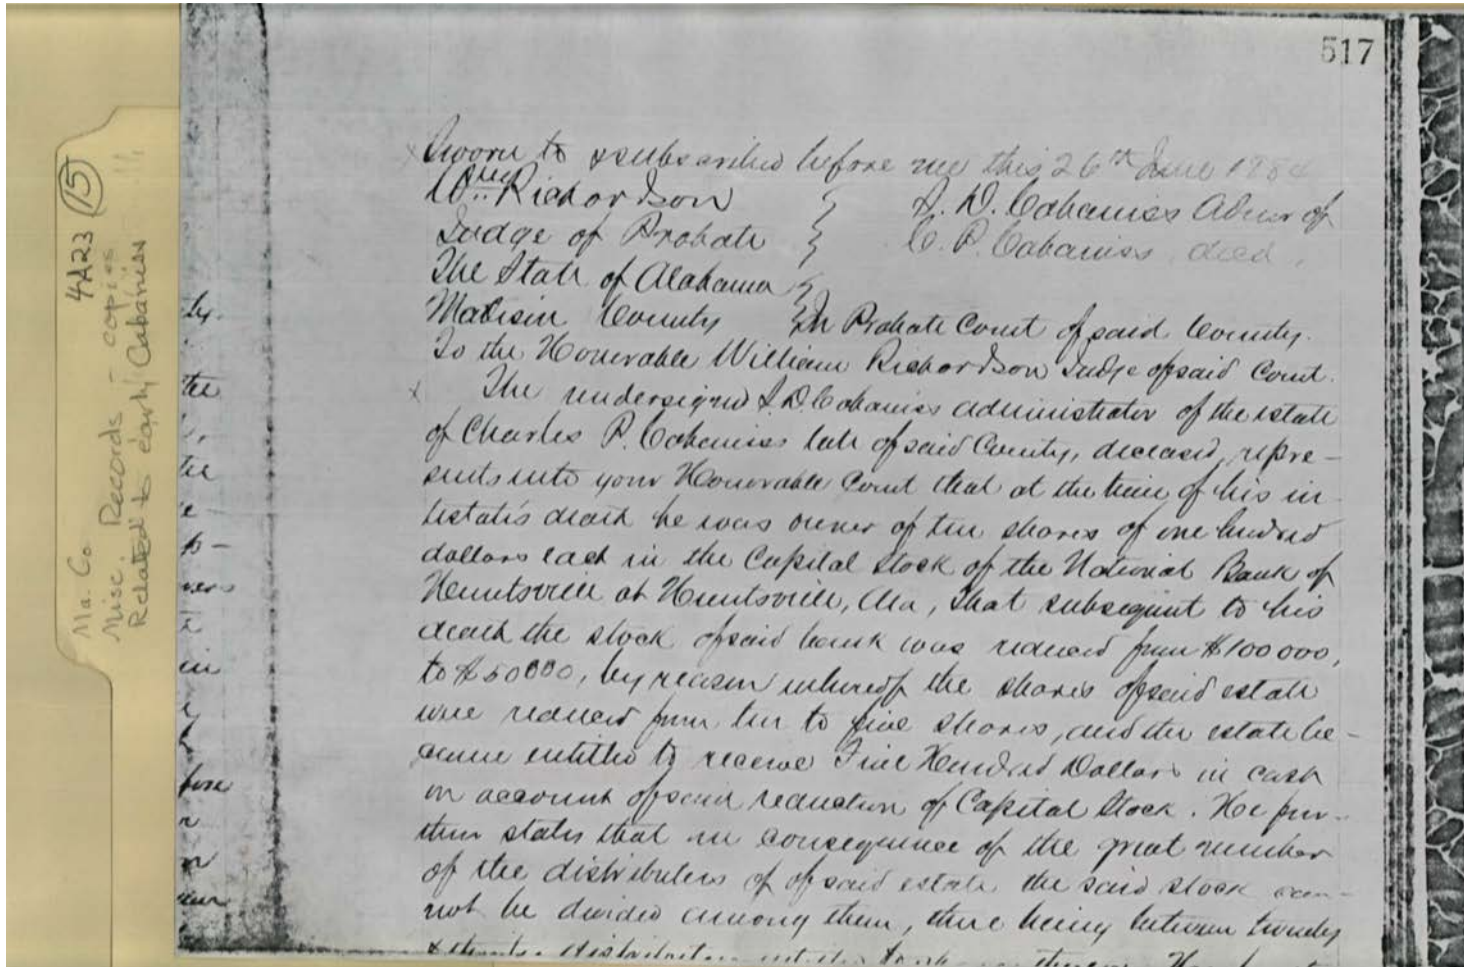 517
Sworn to & subscribed before me this 26th June 1884
Wm Richardson } S. D. Cabaniss Admr of
Judge of Probate } C. P. Cabaniss decd.
The State of Alabama }
Madison County } In Probate Court of said County.
To the Honorable William Richardson Judge of said Court.
x The undersigned S. D. Cabaniss administrator of the estate
of Charles P. Cabaniss late of said County, deceased, repre-
sents unto your Honorable Court that at the time of his in-
testate's death he was owner of ten shares of one hundred
dollars each in the Capital Stock of the National Bank of
Huntsville at Huntsville, Ala, that subsequent to his
death the stock of said bank was reduced from $100000,
to $50000, by reason whereof the shares of said estate
were reduced from ten to five shares, and the estate be-
came entitled to receive Five Hundred Dollars in cash
on account of said reduction of Capital Stock. He fur-
ther states that in consequence of the great number
of the distributees of of said estate the said stock can-
not be divided among them, there being between twenty
4A23 (15)
Ma. Co.
Misc. Records - copies
Related to early Cabaniss
by.
the
the
in